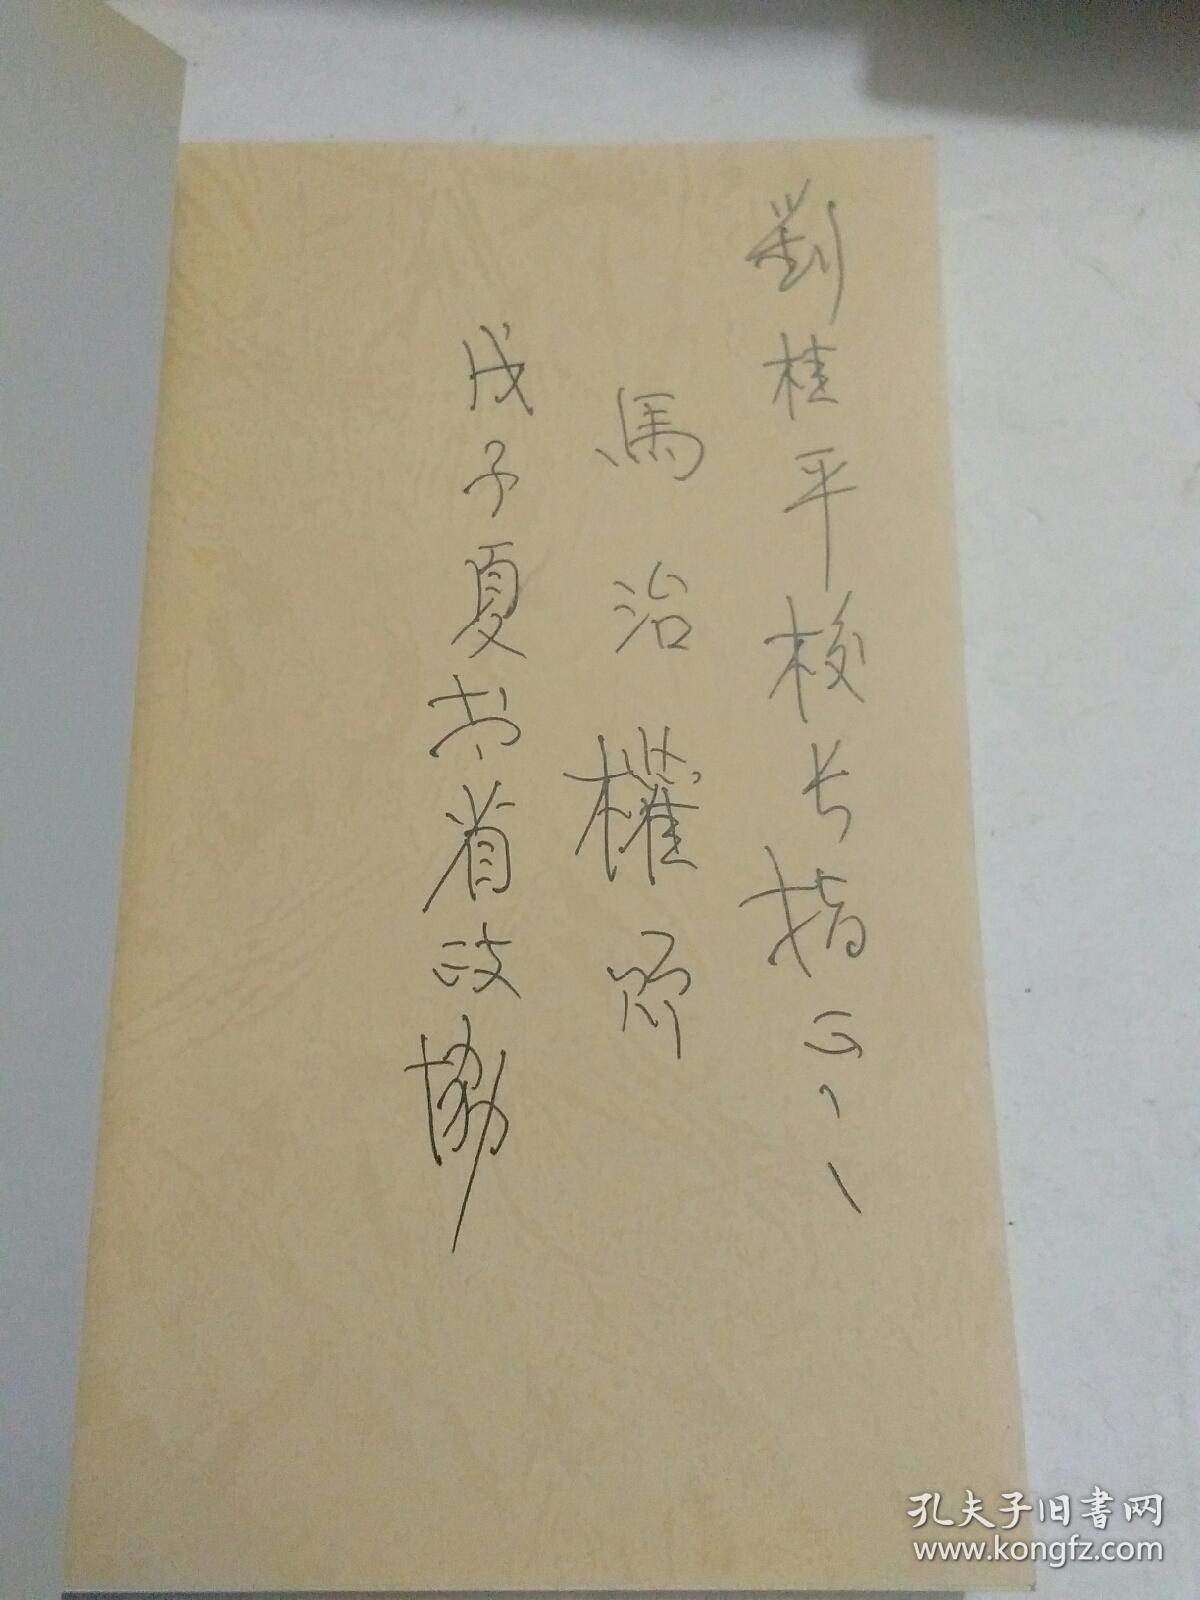 劉桂平校长指正
馬治權贈
戊子夏于省政協
孔夫子旧書网
www.kongfz.com